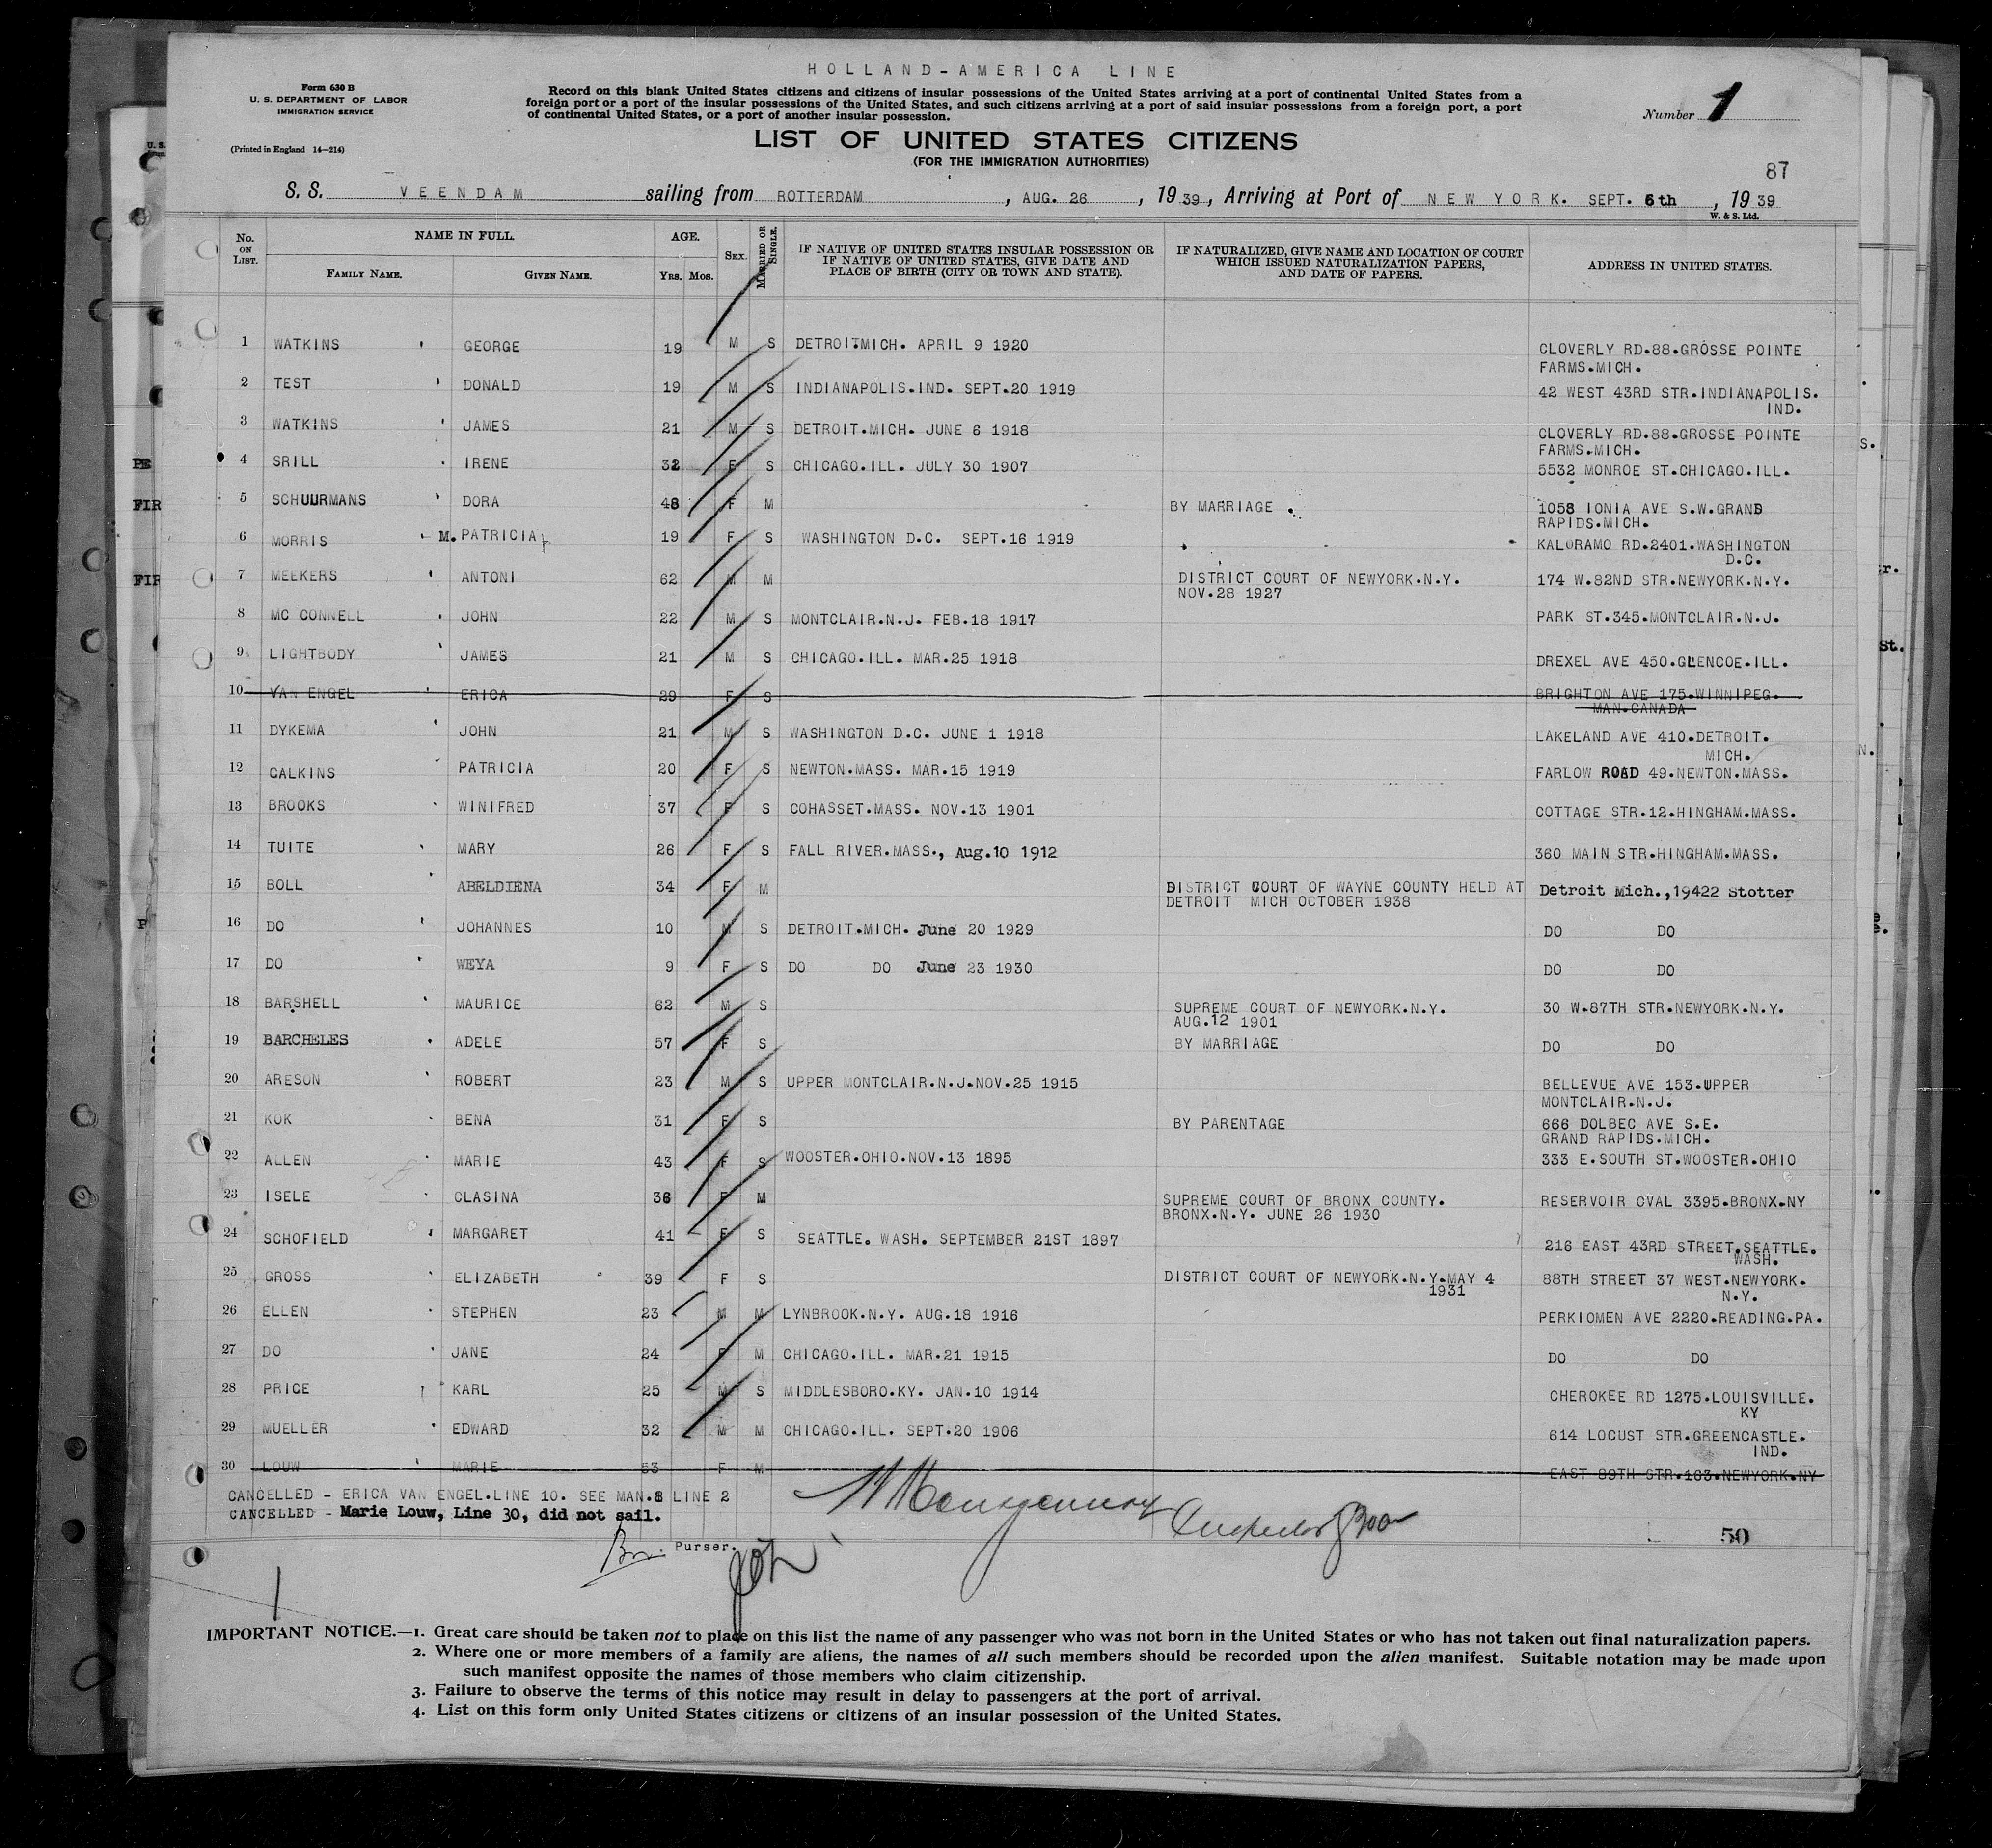 HOLLAND-AMERICA LINE
Form 630 B
U. S. DEPARTMENT OF LABOR
IMMIGRATION SERVICE
(Printed in England 14—214)
Record on this blank United States citizens and citizens of insular possessions of the United States arriving at a port of continental United States from a
foreign port or a port of the insular possessions of the United States, and such citizens arriving at a port of said insular possessions from a foreign port, a port
of continental United States, or a port of another insular possession.
Number 1
LIST OF UNITED STATES CITIZENS
(FOR THE IMMIGRATION AUTHORITIES)
87
S. S. VEENDAM sailing from ROTTERDAM, AUG. 26, 1939, Arriving at Port of NEW YORK. SEPT. 6th, 1939
W. & S. Ltd.
No. ON LIST. NAME IN FULL. AGE. SEX. MARRIED OR SINGLE. IF NATIVE OF UNITED STATES INSULAR POSSESSION OR IF NATIVE OF UNITED STATES, GIVE DATE AND PLACE OF BIRTH (CITY OR TOWN AND STATE). IF NATURALIZED, GIVE NAME AND LOCATION OF COURT WHICH ISSUED NATURALIZATION PAPERS, AND DATE OF PAPERS. ADDRESS IN UNITED STATES.
FAMILY NAME. GIVEN NAME. YRS. MOS.
1 WATKINS GEORGE 19 M S DETROIT.MICH. APRIL 9 1920 CLOVERLY RD.88.GROSSE POINTE
FARMS.MICH.
2 TEST DONALD 19 M S INDIANAPOLIS.IND. SEPT.20 1919 42 WEST 43RD STR.INDIANAPOLIS.
IND.
3 WATKINS JAMES 21 M S DETROIT.MICH. JUNE 6 1918 CLOVERLY RD.88.GROSSE POINTE
FARMS.MICH.
4 SRILL IRENE 32 F S CHICAGO.ILL. JULY 30 1907 5532 MONROE ST.CHICAGO.ILL.
5 SCHUURMANS DORA 48 F M BY MARRIAGE . 1058 IONIA AVE S.W.GRAND
RAPIDS.MICH.
6 MORRIS M. PATRICIA 19 F S WASHINGTON D.C. SEPT.16 1919 KALORAMO RD.2401.WASHINGTON
D.C.
7 MEEKERS ANTONI 62 M M DISTRICT COURT OF NEWYORK.N.Y. 174 W.82ND STR.NEWYORK.N.Y.
NOV.28 1927
8 MC CONNELL JOHN 22 M S MONTCLAIR.N.J. FEB.18 1917 PARK ST.345.MONTCLAIR.N.J.
9 LIGHTBODY JAMES 21 M S CHICAGO.ILL. MAR.25 1918 DREXEL AVE 450.GLENCOE.ILL.
10 VAN ENGEL ERICA 29 F S BRIGHTON AVE 175.WINNIPEG.
MAN.CANADA
11 DYKEMA JOHN 21 M S WASHINGTON D.C. JUNE 1 1918 LAKELAND AVE 410.DETROIT.
MICH.
12 CALKINS PATRICIA 20 F S NEWTON.MASS. MAR.15 1919 FARLOW ROAD 49.NEWTON.MASS.
13 BROOKS WINIFRED 37 F S COHASSET.MASS. NOV.13 1901 COTTAGE STR.12.HINGHAM.MASS.
14 TUITE MARY 26 F S FALL RIVER.MASS., Aug.10 1912 360 MAIN STR.HINGHAM.MASS.
15 BOLL ABELDIENA 34 F M DISTRICT COURT OF WAYNE COUNTY HELD AT Detroit Mich.,19422 Stotter
DETROIT MICH OCTOBER 1938
16 DO JOHANNES 10 M S DETROIT.MICH. June 20 1929 DO DO
17 DO WEYA 9 F S DO DO June 23 1930 DO DO
18 BARSHELL MAURICE 62 M S SUPREME COURT OF NEWYORK.N.Y. 30 W.87TH STR.NEWYORK.N.Y.
AUG.12 1901
19 BARCHELES ADELE 57 F S BY MARRIAGE DO DO
20 ARESON ROBERT 23 M S UPPER MONTCLAIR.N.J.NOV.25 1915 BELLEVUE AVE 153.UPPER
MONTCLAIR.N.J.
21 KOK BENA 31 F S BY PARENTAGE 666 DOLBEC AVE S.E.
GRAND RAPIDS.MICH.
22 ALLEN MARIE 43 F S WOOSTER.OHIO.NOV.13 1895 333 E.SOUTH ST.WOOSTER.OHIO
23 ISELE CLASINA 36 F M SUPREME COURT OF BRONX COUNTY. RESERVOIR OVAL 3395.BRONX.NY
BRONX.N.Y. JUNE 26 1930
24 SCHOFIELD MARGARET 41 F S SEATTLE. WASH. SEPTEMBER 21ST 1897 216 EAST 43RD STREET.SEATTLE.
WASH.
25 GROSS ELIZABETH 39 F S DISTRICT COURT OF NEWYORK.N.Y.MAY 4 88TH STREET 37 WEST.NEWYORK.
1931 N.Y.
26 ELLEN STEPHEN 23 M M LYNBROOK.N.Y. AUG.18 1916 PERKIOMEN AVE 2220.READING.PA.
27 DO JANE 24 F M CHICAGO.ILL. MAR.21 1915 DO DO
28 PRICE KARL 25 M S MIDDLESBORO.KY. JAN.10 1914 CHEROKEE RD 1275.LOUISVILLE.
KY
29 MUELLER EDWARD 32 M M CHICAGO.ILL. SEPT.20 1906 614 LOCUST STR.GREENCASTLE.
IND.
30 LOUW MARIE 53 F M EAST 89TH STR.163.NEWYORK.NY
CANCELLED - ERICA VAN ENGEL.LINE 10. SEE MAN.8 LINE 2
CANCELLED - Marie Louw, Line 30, did not sail.
Purser.
50
1
IMPORTANT NOTICE.—1. Great care should be taken not to place on this list the name of any passenger who was not born in the United States or who has not taken out final naturalization papers.
2. Where one or more members of a family are aliens, the names of all such members should be recorded upon the alien manifest. Suitable notation may be made upon
such manifest opposite the names of those members who claim citizenship.
3. Failure to observe the terms of this notice may result in delay to passengers at the port of arrival.
4. List on this form only United States citizens or citizens of an insular possession of the United States.